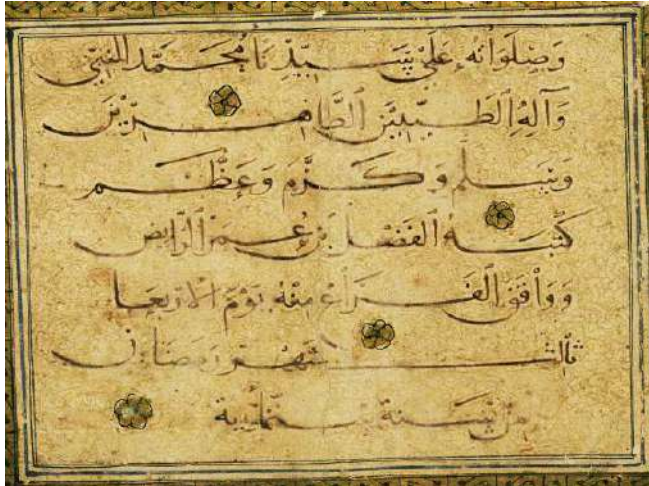 وَصَلَوَاتُهُ عَلَىٰ سَيِّدِنَا مُحَمَّدٍ النَّبِيِّ
وَآلِهِ الطَّيِّبِيْنَ الطَّاهِرِيْنَ
وَسَلَّمَ وَكَرَّمَ وَعَظَّمَ
كَتَبَهُ الفَضْلُ بْنُ عُمَرَ الرَّائِض
وَوَافَقَ الفَرَاغُ مِنْهُ يَوْمَ الأَرْبِعَا
ثَالِث شَهْرِ رَمَضَان
مِنْ سَنَة سِتّمائِية